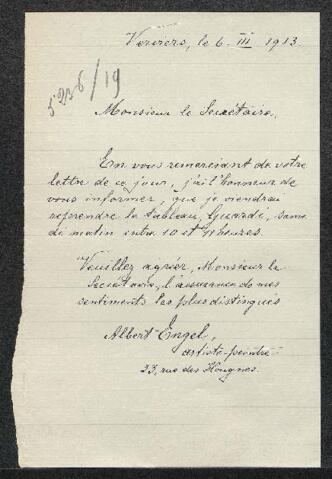 Verviers, le 6. III 1913
5236/19
Monsieur le Secrétaire,
En vous remerciant de votre
lettre de ce jour, j'ai l'honneur de
vous informer, que je viendrai
reprendre le tableau, Guarde, same
di matin entre 10 et 11 heures.
Veuillez agréer, Monsieur le
Secrétaire, l'assurance de mes
sentiments les plus distingués
Albert Engel,
artiste-peintre
23, rue des Hougnes.